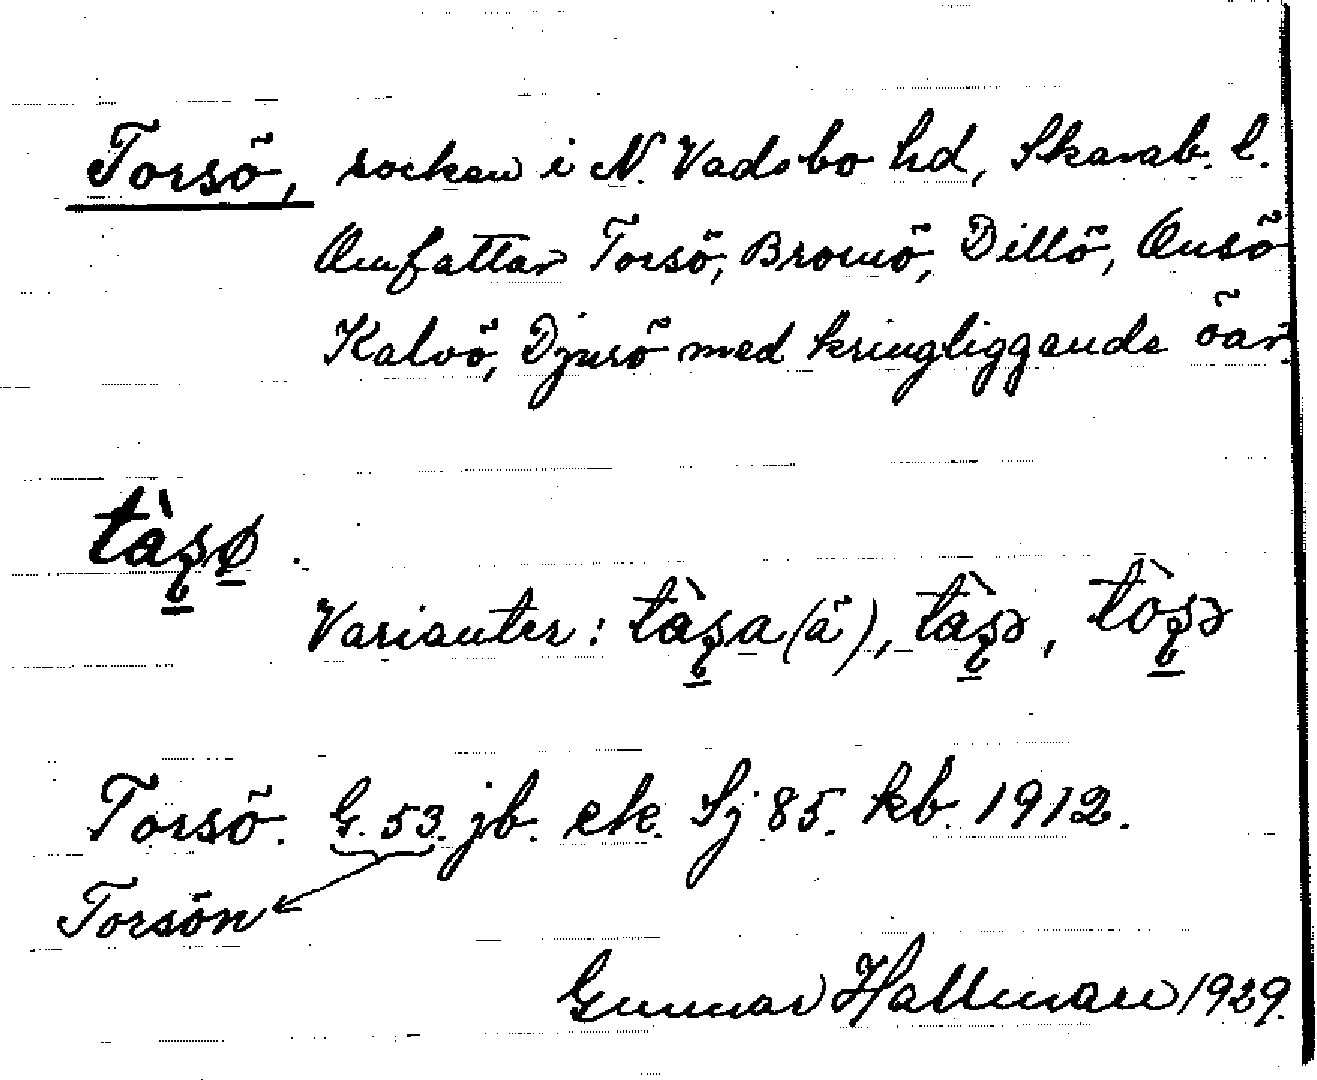 Torsö, socken i N. Vadsbo hd, Skarab. l.
Omfattar Torsö, Bromö, Dillö, Onsö
Kalvö, Djurö med kringliggande öar.
tàʂø.
Varianter: tàʂa (å), tàʂə, tòʂə
Torsö. G. 53. jb. ek. Sj 85. kb. 1912.
Torsön
Gunnar Hallman 1929.